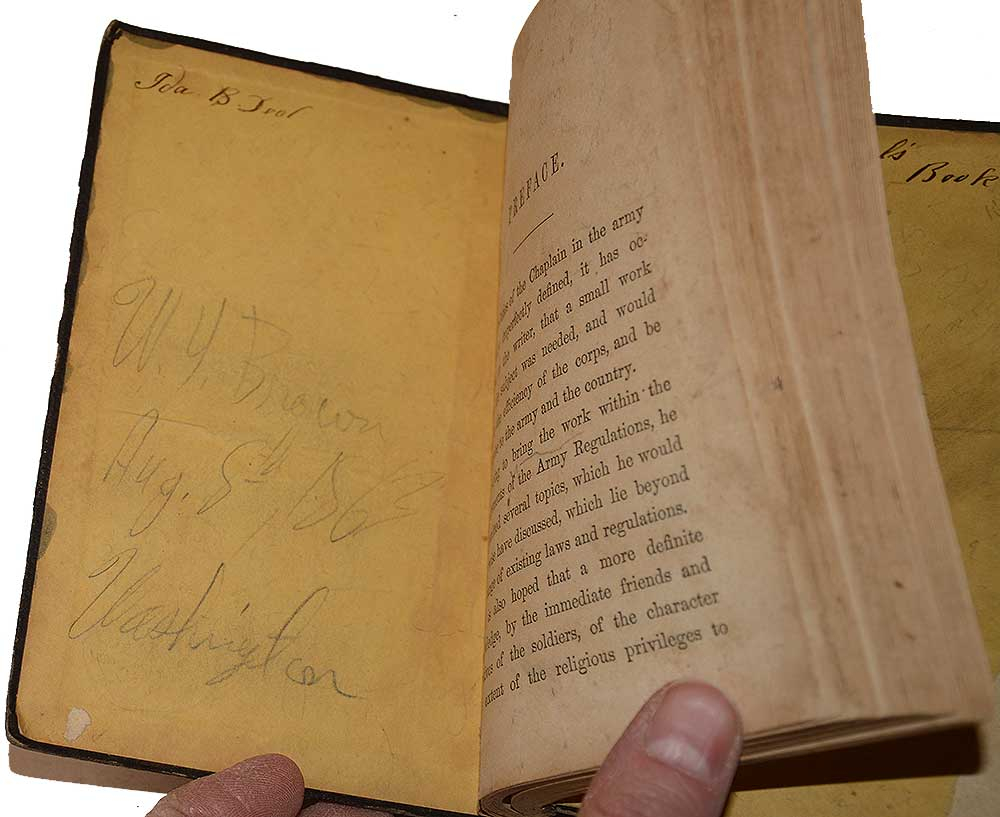 Ida B.
W. Y. Brown
Aug. 8th, 1862
Washington
PREFACE.
of the Chaplain in the army
imperfectly defined, it has oc-
the writer, that a small work
subject was needed, and would
efficiency of the corps, and be
to the army and the country.
to bring the work within the
of the Army Regulations, he
several topics, which he would
have discussed, which lie beyond
of existing laws and regulations.
also hoped that a more definite
by the immediate friends and
of the soldiers, of the character
extent of the religious privileges to
Book